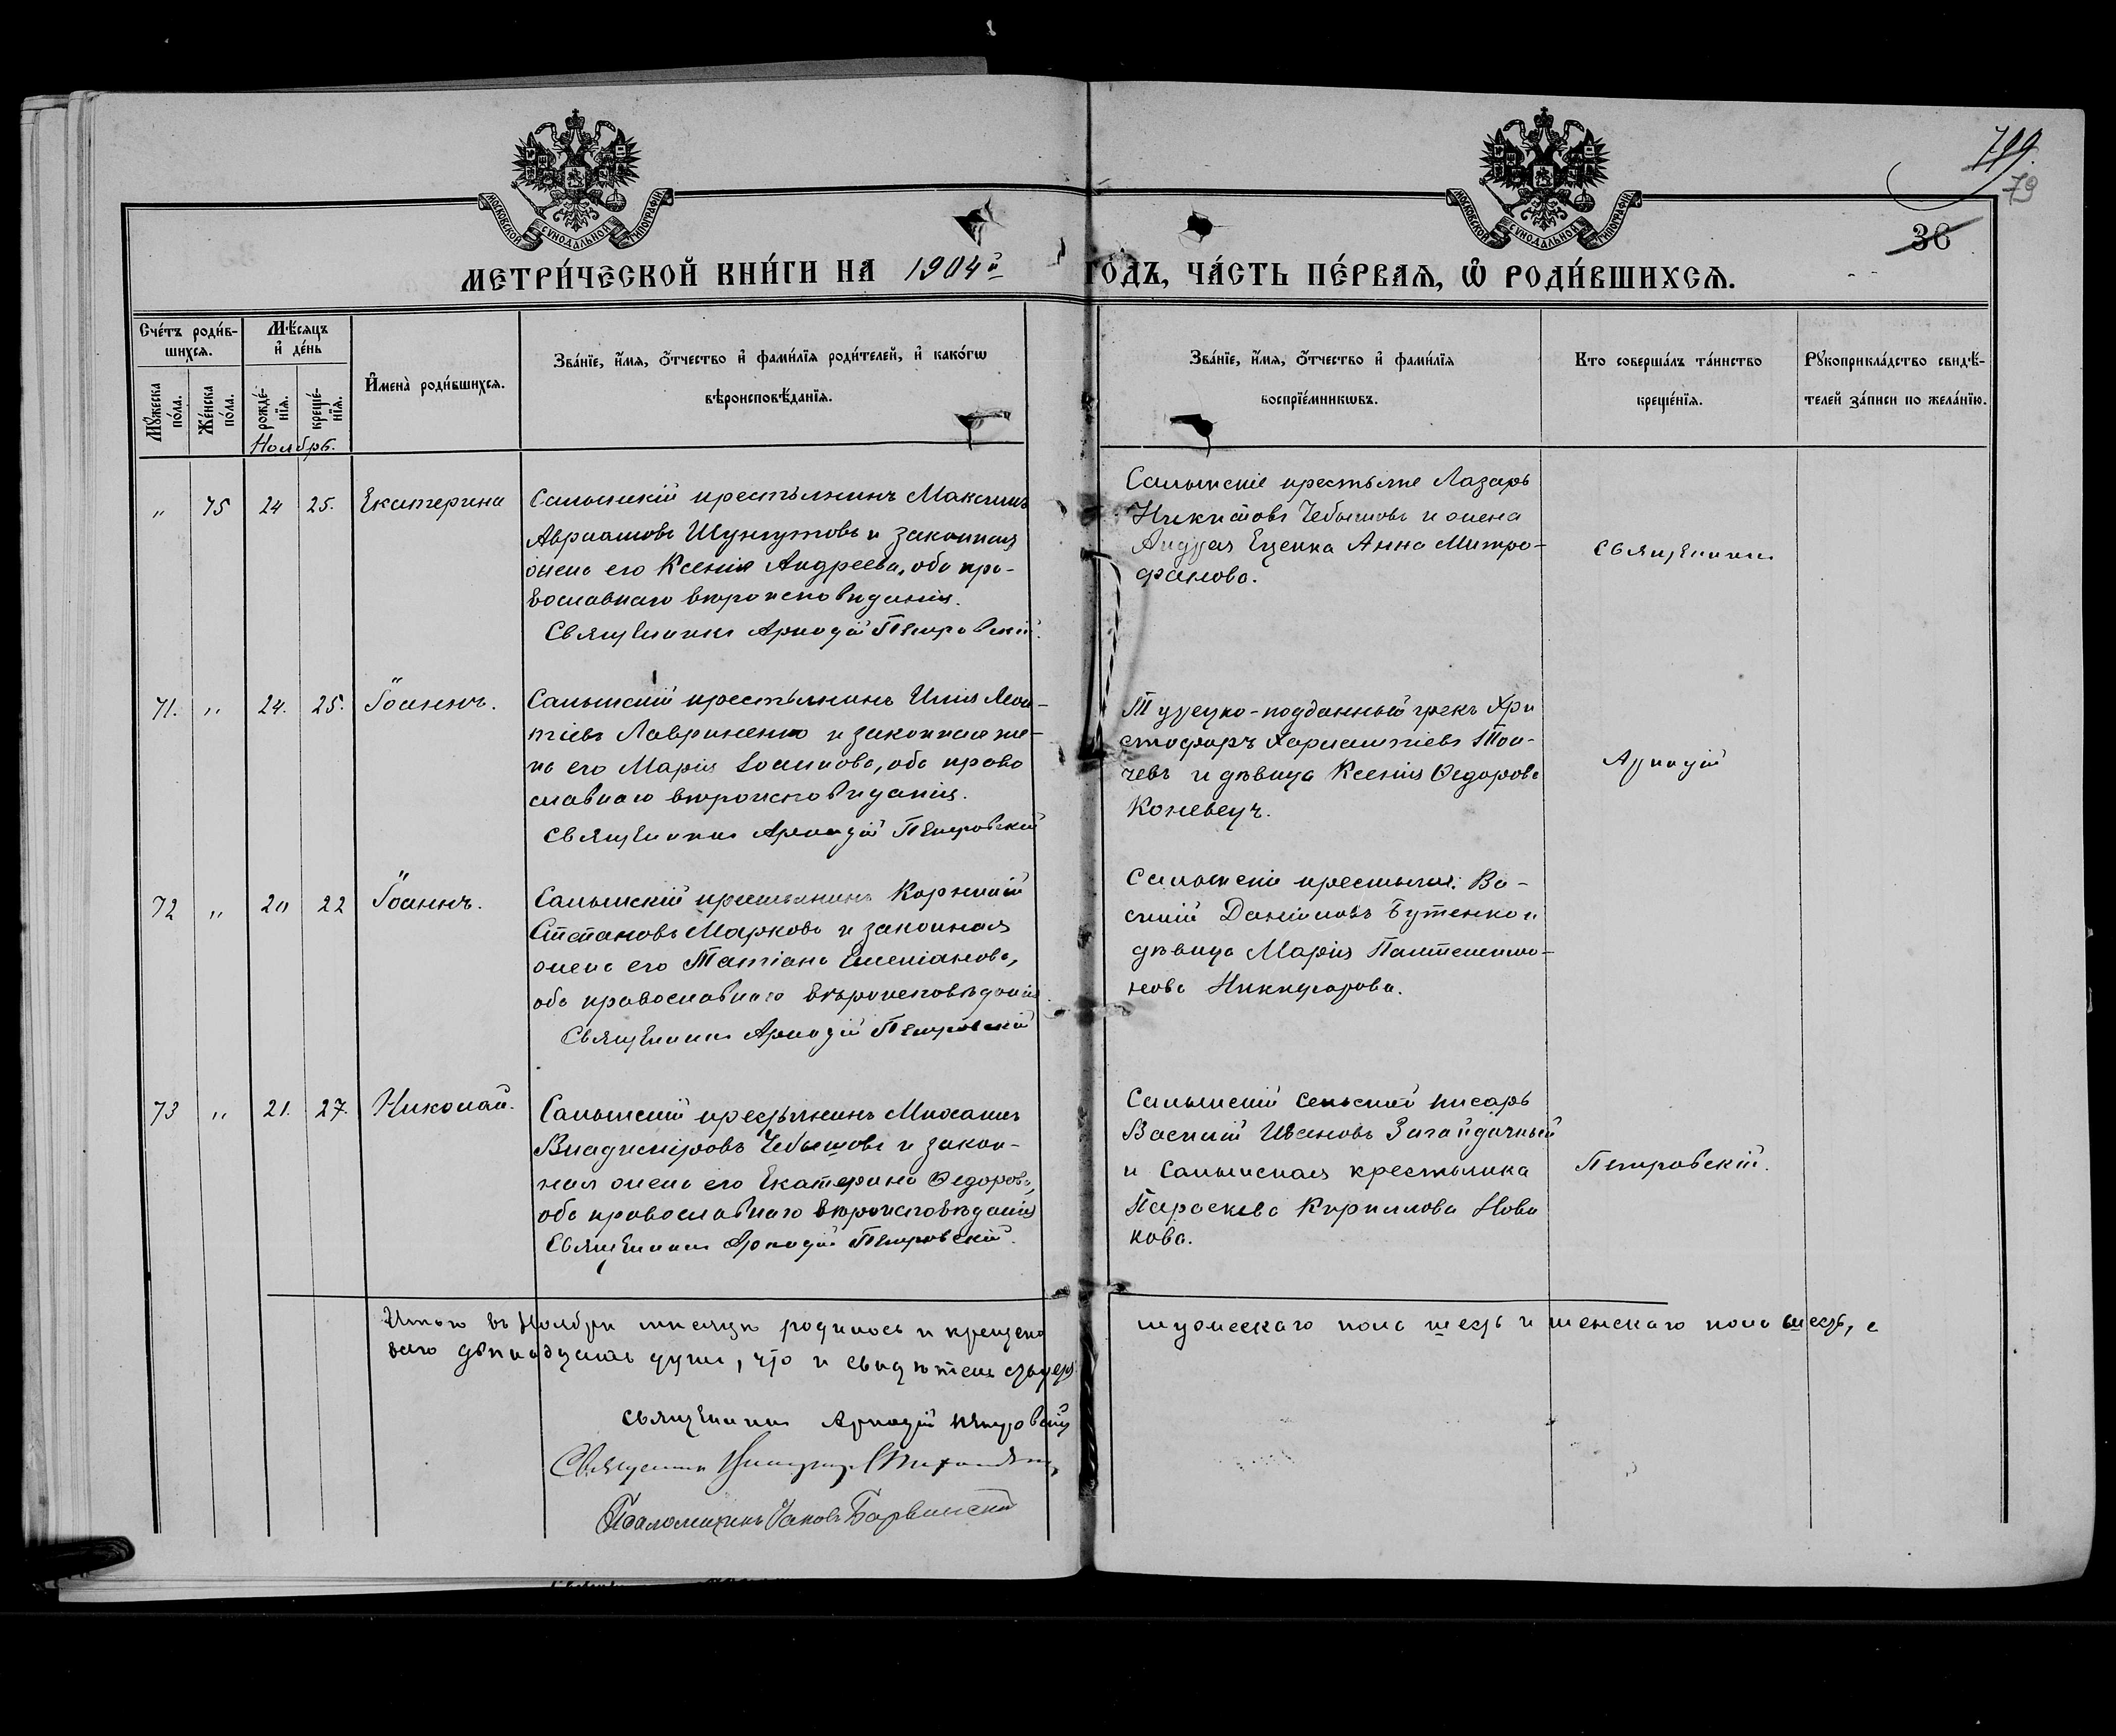 799.
79
36
МОСКОВСКОЙ СѴНОДАЛЬНОЙ ТИПОГРАФІИ
МОСКОВСКОЙ СѴНОДАЛЬНОЙ ТИПОГРАФІИ
МЕТРИ́ЧЕСКОЙ КНИ́ГИ НА 1904й ГОДЪ, ЧА́СТЬ ПЕ́РВАЯ, Ѡ҆ РОДИ́ВШИХСЯ.
Сче́тъ роди́в-
шихся.
Мꙋжеска
по́ла.
Же́нска
по́ла.
Мѣ́сяцъ
и҆ де́нь
рожде́-
нїя.
креще́-
нїя.
Ноябрь.
И҆мена̀ роди́вшихся.
Зва́нїе, и҆́мя, ѻ҆́тчество и҆ фами́лїя роди́телей, и҆ како́гѡ
вѣроисповѣ́данїя.
Зва́нїе, и҆́мя, ѻ҆́тчество и҆ фами́лїя
воспрїе́мникѡвъ.
Кто соверша́лъ та́инство
креще́нїя.
Рꙋкоприкла́дство свидѣ́-
телей за́писи по жела́нїю.
" 75 24 25. Екатерина
Салынскій крестьянинъ Максимъ
Авраамовъ Шунгутовъ и законная
жена его Ксенія Андреева, оба пра-
вославнаго вѣроисповѣданія.
Священникъ Аркадій Петровскій.
Салынскіе крестьяне Лазарь
Никитовъ Чебышовъ и жена
Андрея Еценка Анна Митро-
фанова.
Священникъ
71. " 24. 25. Іоаннъ.
Салынскій крестьянинъ Илія Леон-
тіевъ Лавриненко и законная же-
на его Марія Іоаннова, оба право
славнаго вѣроисповѣданія.
Священникъ Аркадій Петровскій
Турецко-подданный грекъ Хри
стофоръ Харлампіевъ
и дѣвица Ксенія Ѳедорова
Коневецъ.
Аркадій
72 " 20 22 Іоаннъ.
Салынскій крестьянинъ Корнилій
Стефановъ Марковъ и законная
жена его Татіана Емеліанова,
оба православнаго вѣроисповѣданія
Священникъ Аркадій Петровскій
Салынскіе крестьяне: Ва-
силій Даніиловъ Бутенко и
дѣвица Марія Пантелеимо-
нова
73 " 21. 27. Николай.
Салынскій крестьянинъ Михаилъ
Владиміровъ Чебышовъ и закон-
ная жена его Екатерина Ѳедорова,
оба православнаго вѣроисповѣданія
Священникъ Аркадій Петровскій.
Салынскій сельскій писарь
Василій Ивановъ Загайдачный
и Салынская крестьянка
Параскева Кириллова Нови
кова.
Петровскій.
Итого въ Ноябрѣ мѣсяцѣ родилось и крещено мужескаго пола шесть и женскаго пола шесть, а
всего двѣнадцать душъ, что и свидѣтельствуетъ
Священникъ Аркадій Петровскій
Священникъ
Псаломщикъ Іаковъ Барвинскій